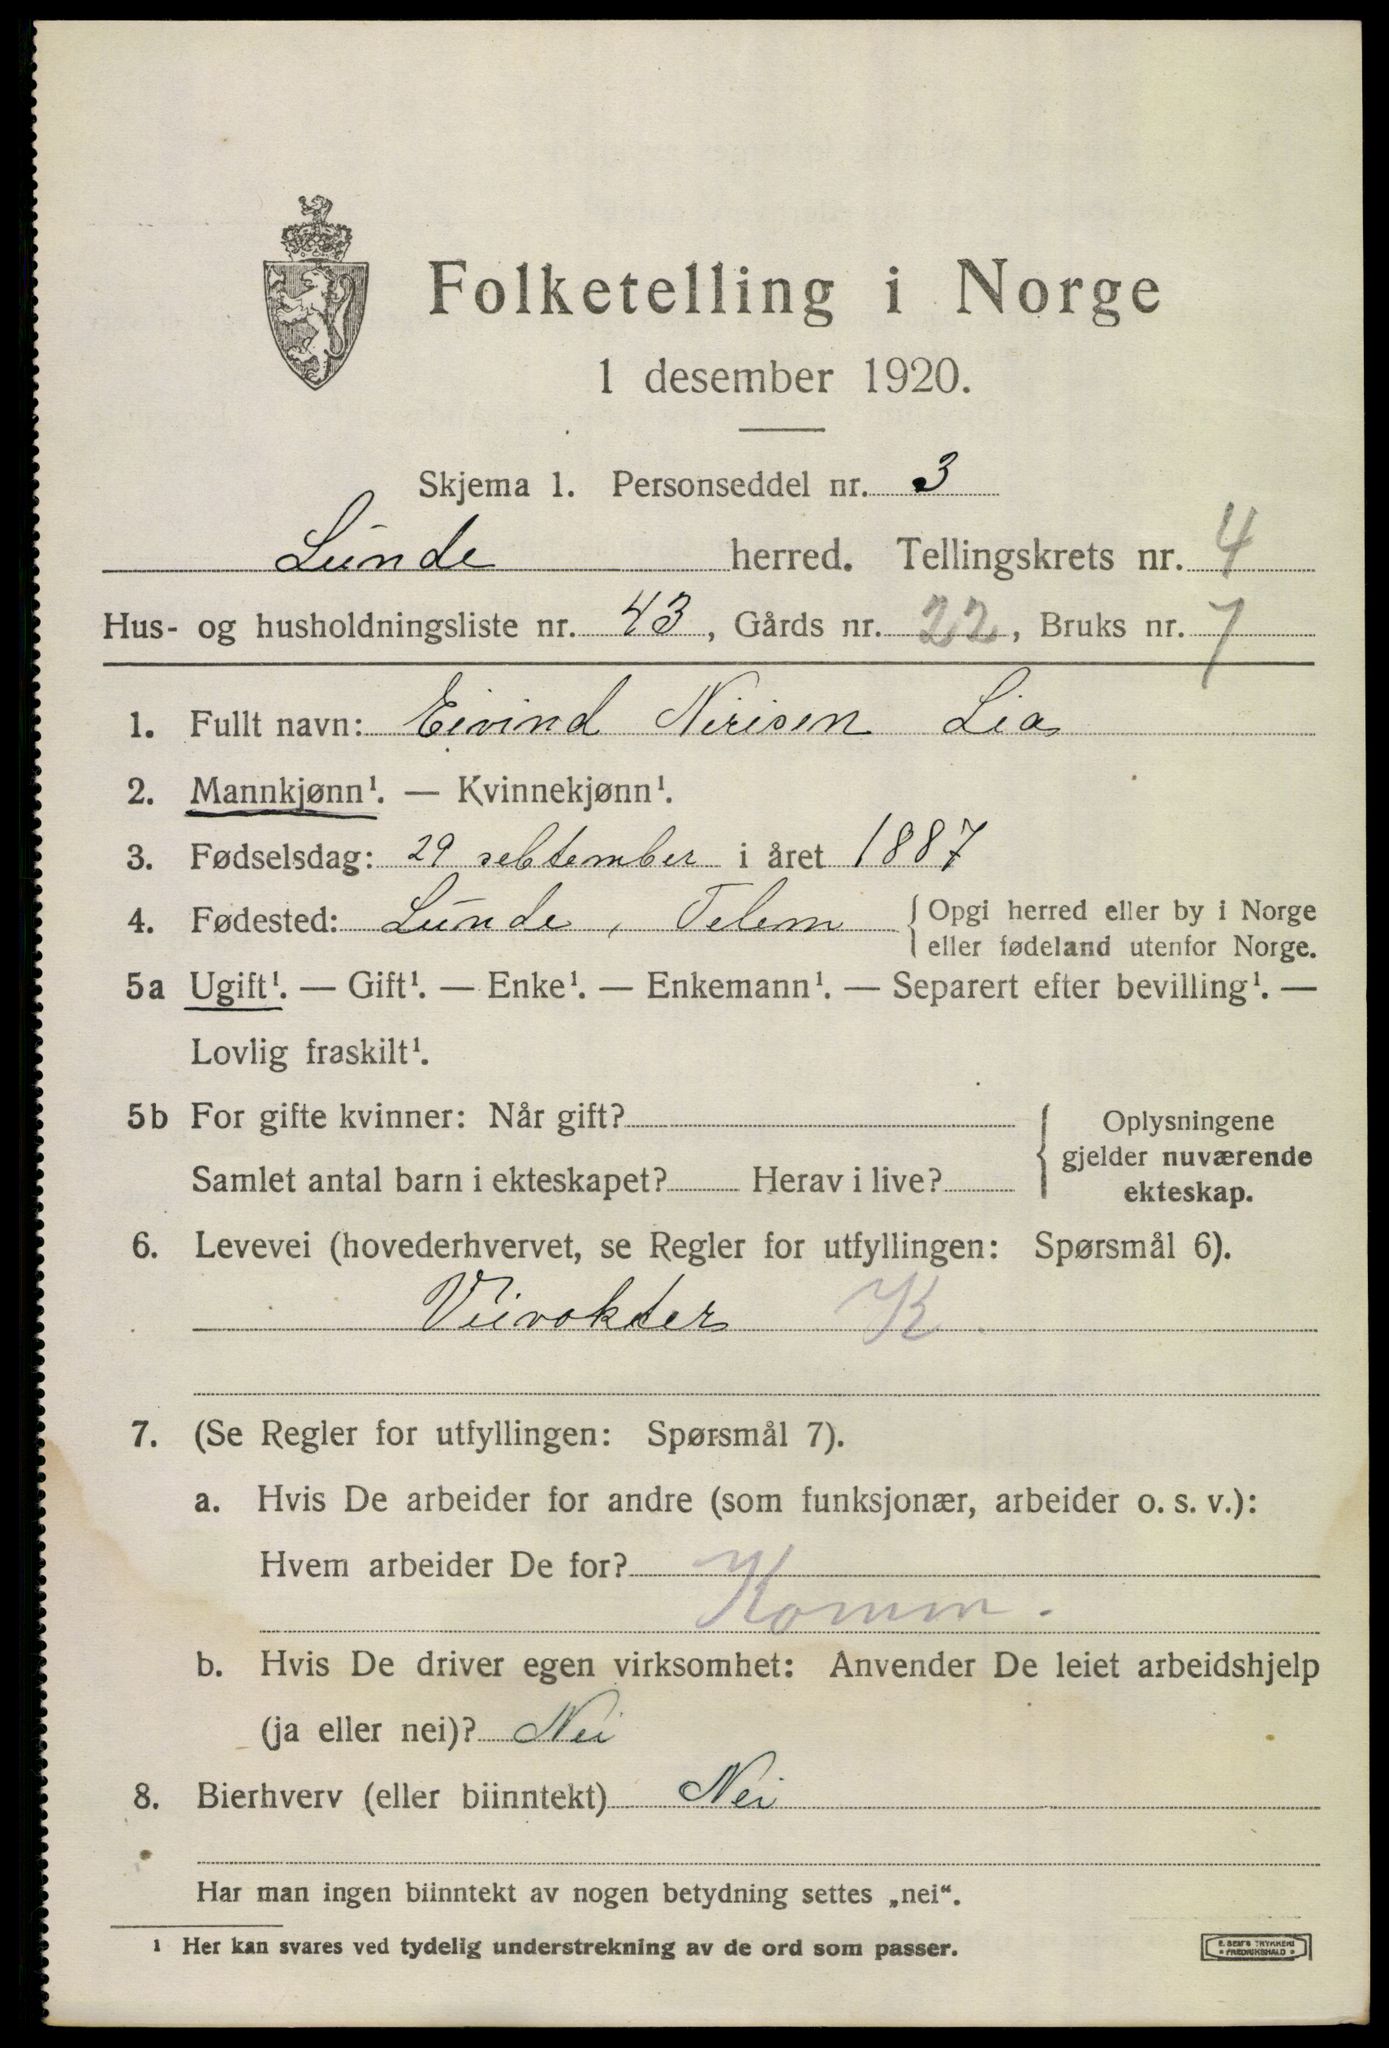 Folketelling i Norge
1 desember 1920.
Skjema 1. Personseddel nr. 3
Lunde herred. Tellingskrets nr. 4
Hus- og husholdningsliste nr. 43, Gårds nr. 22, Bruks nr. 7
1. Fullt navn: Eivind Nirisen Lia
2. Mannkjønn¹. — Kvinnekjønn¹.
3. Fødselsdag: 29 sebtember i året 1887
4. Fødested: Lunde, Telem { Opgi herred eller by i Norge
eller fødeland utenfor Norge.
5a Ugift¹. — Gift¹. — Enke¹. — Enkemann¹. — Separert efter bevilling¹. —
Lovlig fraskilt¹.
5b For gifte kvinner: Når gift? { Oplysningene
gjelder nuværende
Samlet antal barn i ekteskapet? Herav i live? ekteskap.
6. Levevei (hovederhvervet, se Regler for utfyllingen: Spørsmål 6).
Veivokter K.
7. (Se Regler for utfyllingen: Spørsmål 7).
a. Hvis De arbeider for andre (som funksjonær, arbeider o. s. v.):
Hvem arbeider De for?
Komm.
b. Hvis De driver egen virksomhet: Anvender De leiet arbeidshjelp
(ja eller nei)? Nei
8. Bierhverv (eller biinntekt) Nei
Har man ingen biinntekt av nogen betydning settes „nei“.
¹ Her kan svares ved tydelig understrekning av de ord som passer.
E. SEM'S TRYKKERI
FREDRIKSHALD